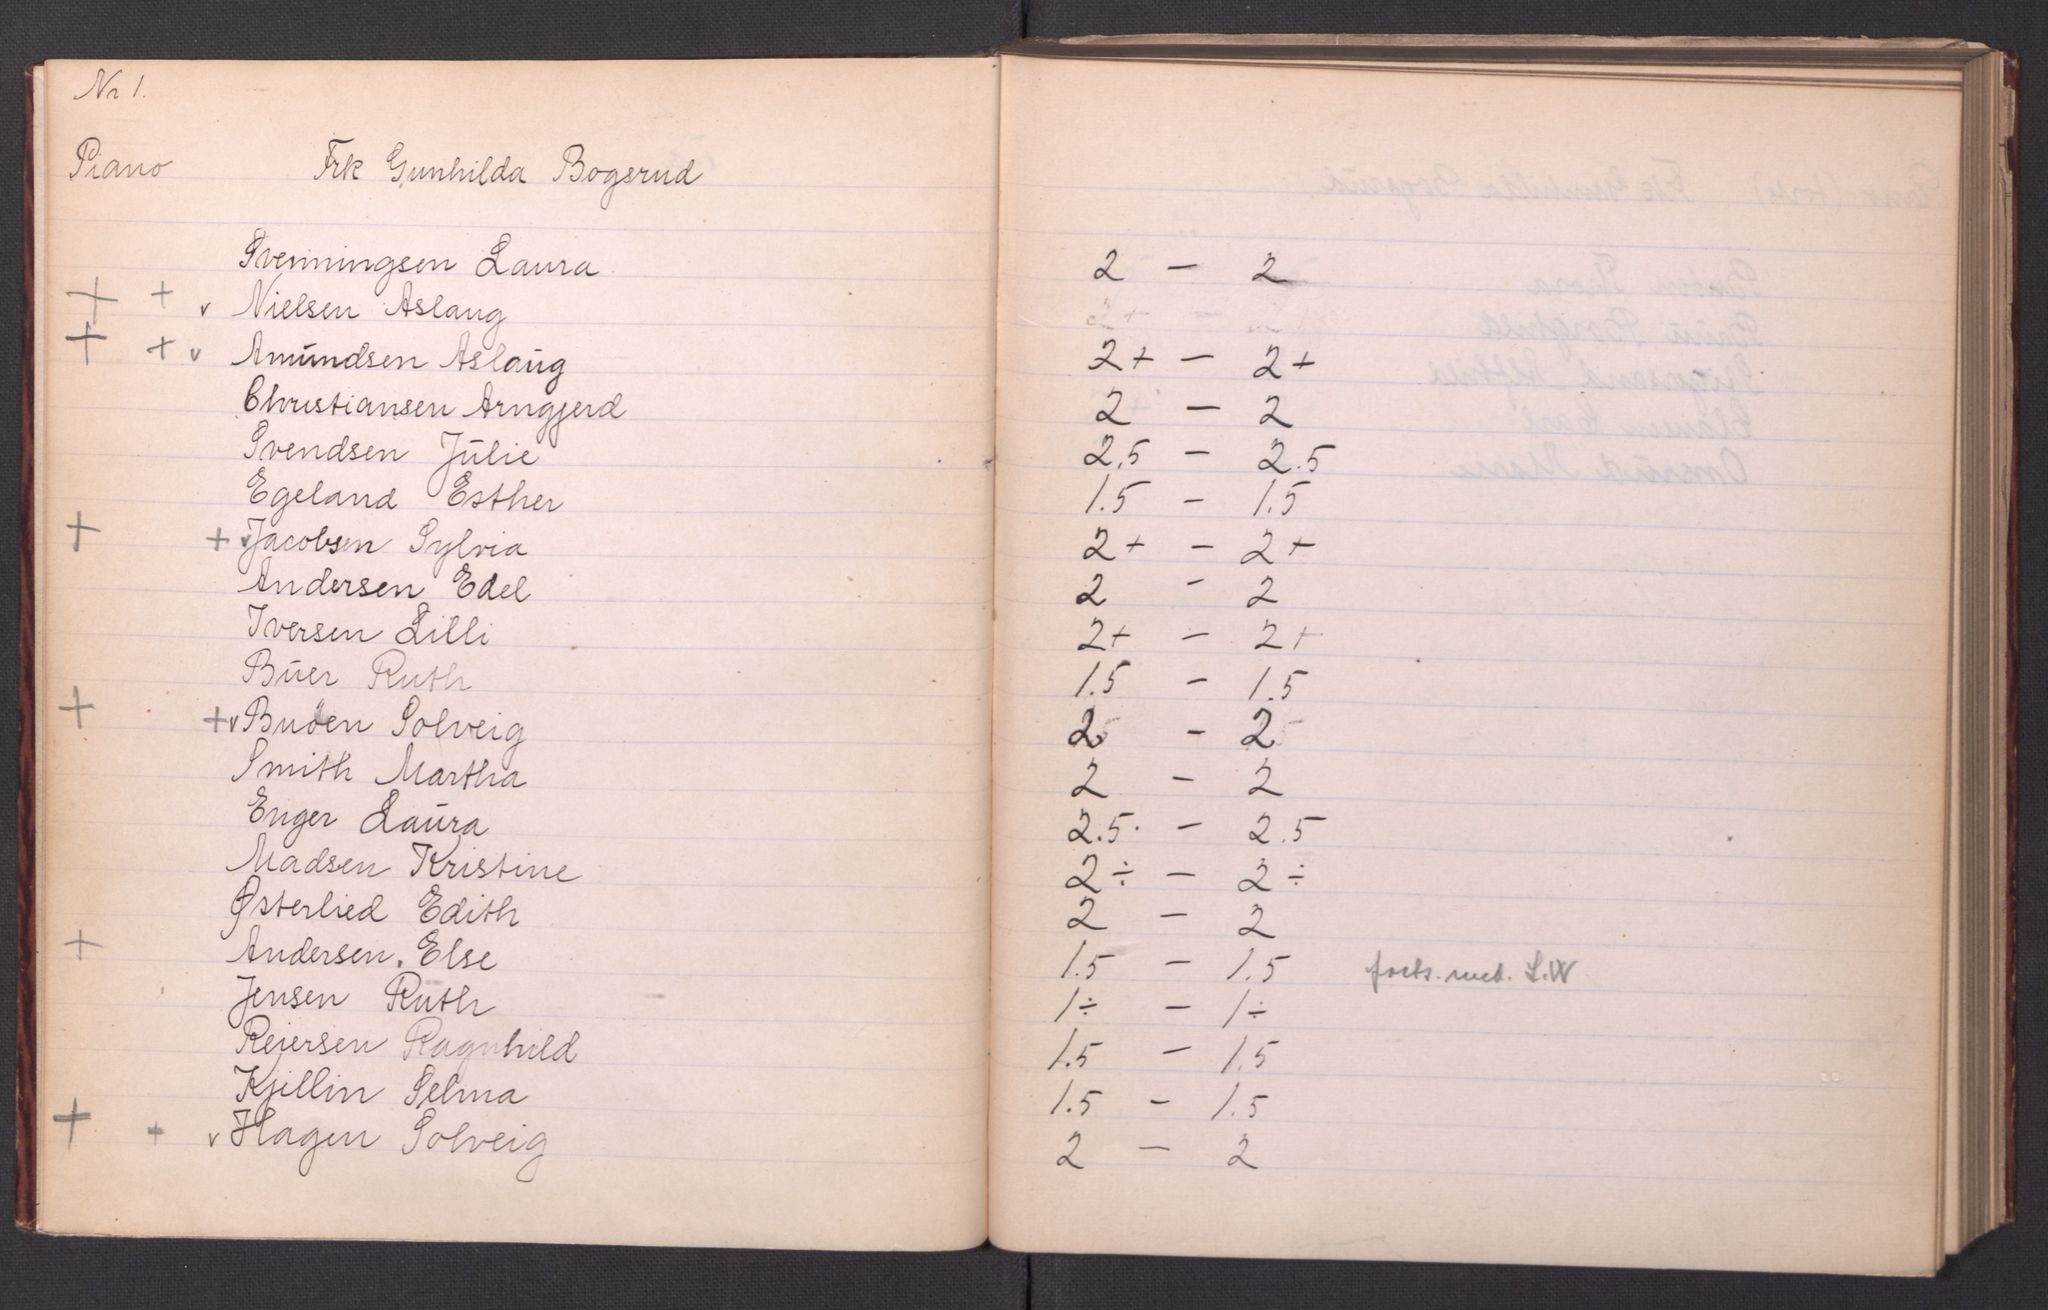 Nr 1.
Piano Frk Gunhilda Bogsrud
Svenningsen Laura 2 — 2
+ + v Nielsen Aslaug
+ + v Amundsen Aslaug 2+ — 2+
Christiansen Arngjerd 2 — 2
Svendsen Julie 2,5 — 2.5
Egeland Esther 1.5 — 1.5
+ + v Jacobsen Sylvia 2+ — 2+
Andersen Edel 2 - 2
Iversen Lilli 2+ — 2+
Buer Ruth 1.5 — 1.5
+ + v Buden Solveig 2 - 2
Smith Martha 2 — 2
Enger Laura 2.5. — 2.5
Madsen Kristine 2÷ — 2÷
Østerlied Edith 2 — 2
+ Andersen. Else 1.5 — 1.5 forts. med. L.W
Jensen Ruth 1÷ — 1÷
Reiersen Ragnhild 1.5 — 1.5
Kjillin Selma 1.5 — 1.5
+ + v Hagen Solveig 2 — 2